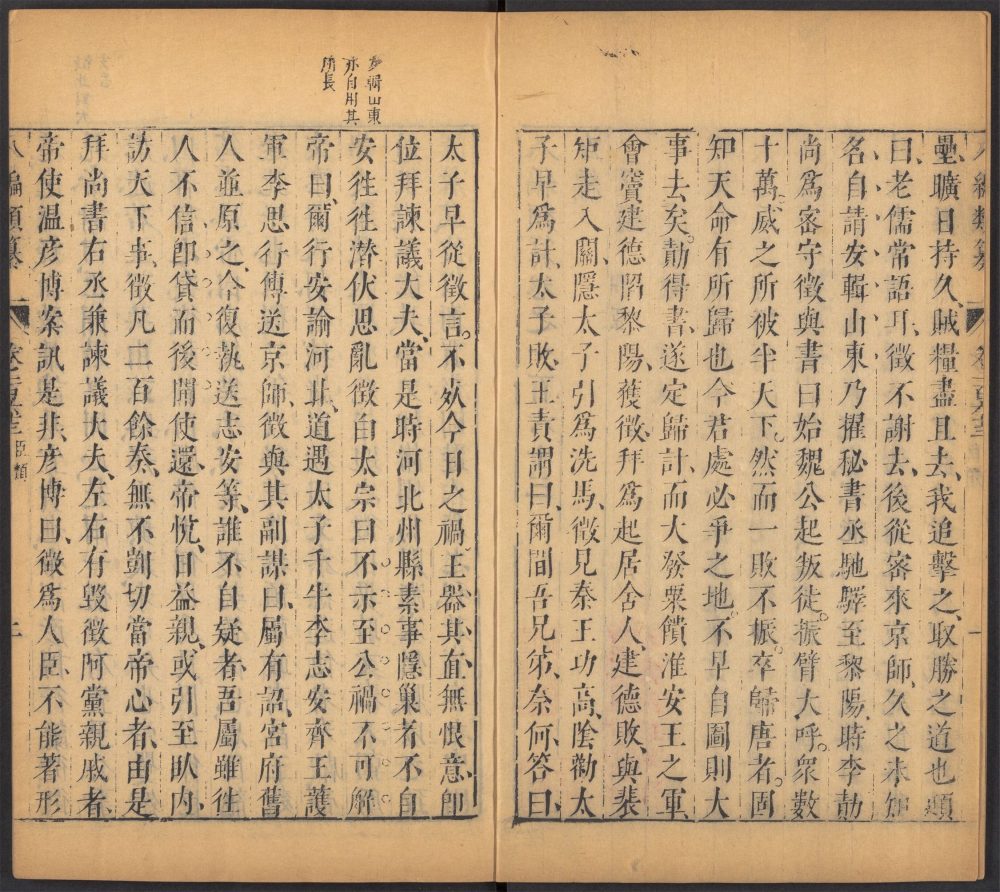 壘、曠日持久、賊糧盡且去、我追擊之、取勝之道也、頲
曰、老儒常語耳、徵不謝去、後從密來京師、久之未知
名、自請安輯山東、乃擢秘書丞、馳驛至黎陽、時李勣
尚爲密守、徵與書曰、始魏公起叛徒、振臂大呼、衆數
十萬、威之所被半天下、然而一敗不振、卒歸唐者、固
知天命有所歸也、今君處必爭之地、不早自圖則大
事去矣、勣得書、遂定歸計、而大發粟饋淮安王之軍、
會竇建德陷黎陽、獲徵、拜爲起居舍人、建德敗、與裴
矩走入關、隱太子引爲洗馬、徵見秦王功高、陰勸太
子早爲計、太子敗、王責謂曰、爾鬩吾兄弟、奈何、答曰、
安輯山東
亦自用其
所長
太子早從徵言、不死今日之禍、王器其直、無恨意、卽
位拜諫議大夫、當是時河北州縣素事隱巢者不自
安、往往潛伏思亂、徵白太宗曰、不示至公、禍不可解、
帝曰、爾行安諭河北、道遇太子千牛李志安齊王護
軍李思行傳送京師、徵與其副謀曰、屬有詔、宮府舊
人並原之、今復執送志安等、誰不自疑者、吾屬雖往、
人不信、卽貸而後聞、使還、帝悅、日益親、或引至臥內、
訪天下事、徵凡二百餘奏、無不剴切當帝心者、由是
拜尚書右丞兼諫議大夫、左右有毀徵阿黨親戚者、
帝使溫彥博案訊是非、彥博曰、徵爲人臣、不能著形
八編類纂
臣類
二